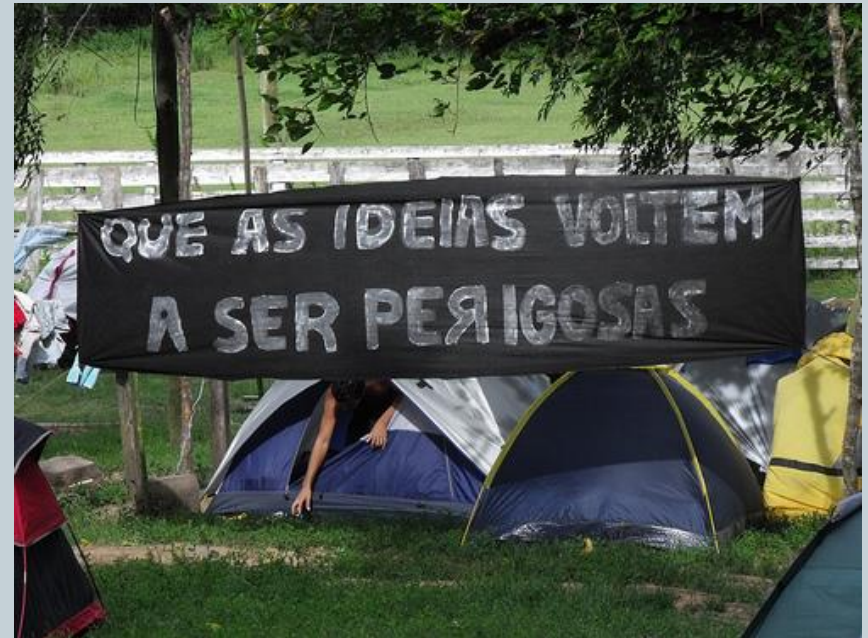 QUE AS IDEIAS VOLTEM
A SER PERIGOSAS